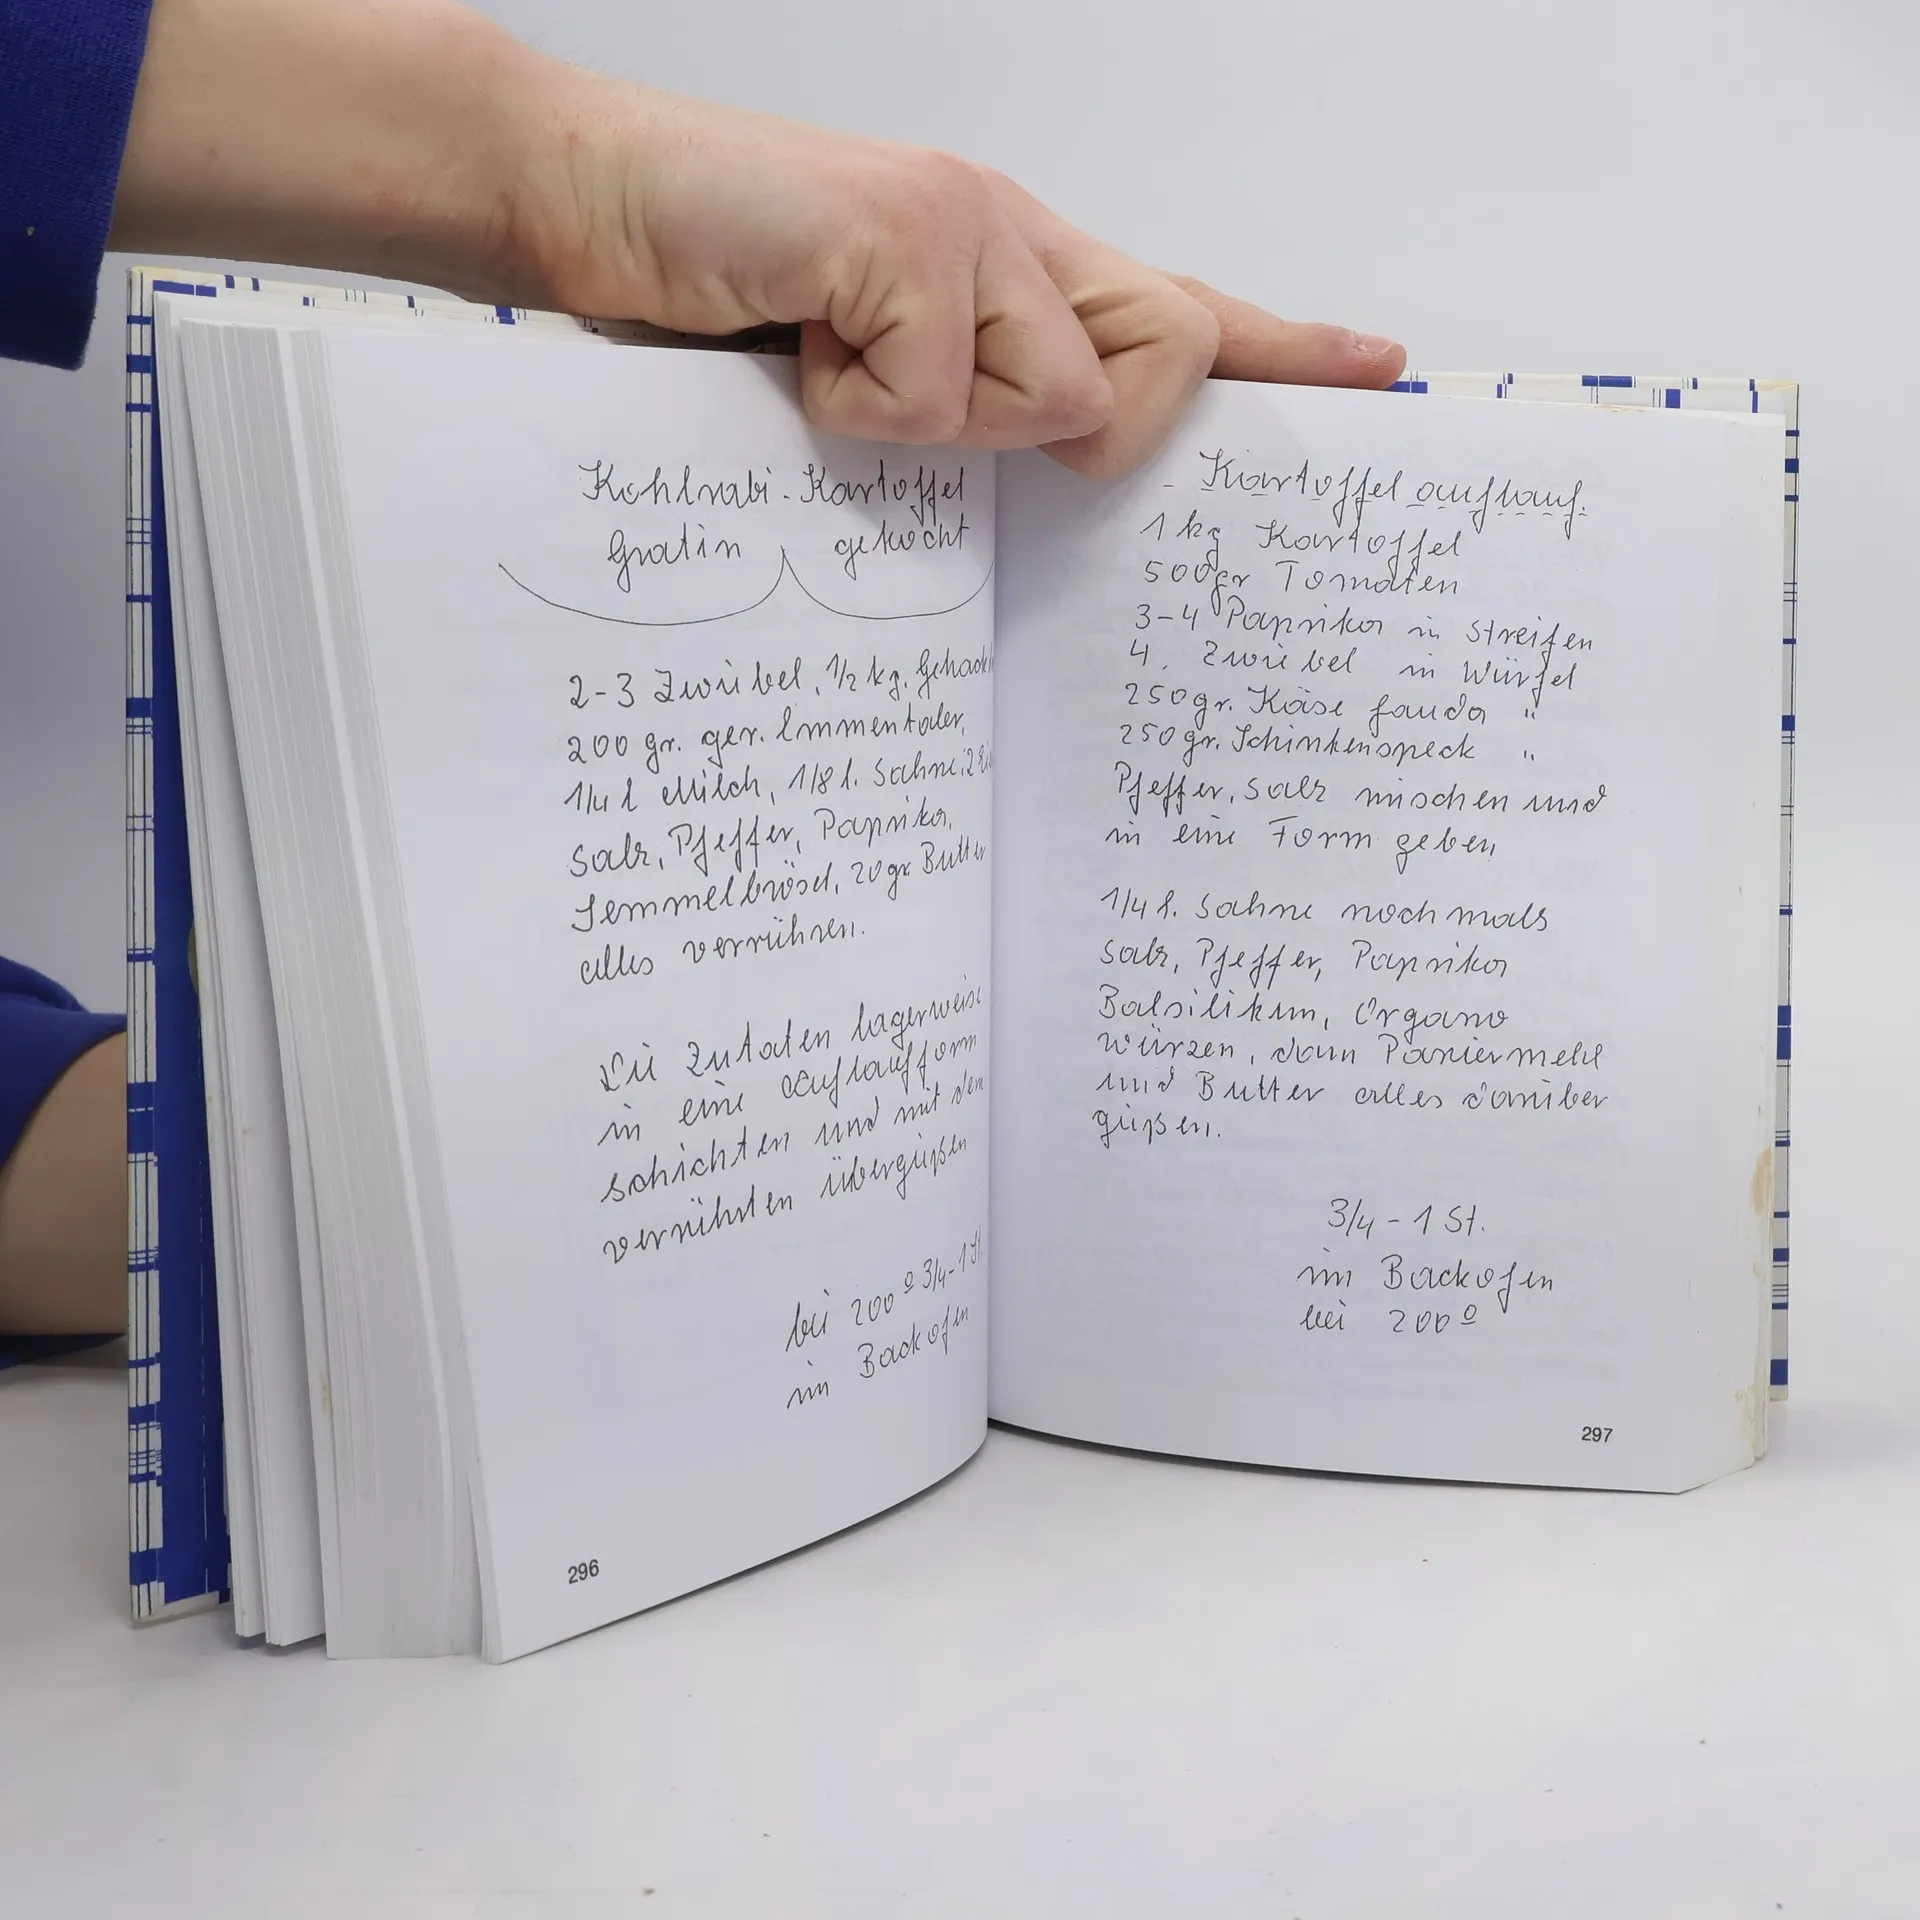 Kohlrabi - Kartoffel
Gratin gekocht
2-3 Zwiebel, 1/2 kg. Gehackt
200 gr. ger. Emmentaler,
1/4 l Milch, 1/8 l. Sahne, 2 Ei
Salz, Pfeffer, Paprika,
Semmelbrösel, 20 gr. Butter
alles verrühren.
Die Zutaten lagerweise
in eine Auflaufform
schichten und mit dem
verrührten übergießen
bei 200º 3/4-1 St.
im Backofen
296
- Kartoffelauflauf.
1 kg Kartoffel
500gr Tomaten
3-4 Paprika in Streifen
4. Zwiebel in Würfel
250gr. Käse gauda "
250gr. Schinkenspeck "
Pfeffer, Salz mischen und
in eine Form geben,
1/4 l. Sahne nochmals
Salz, Pfeffer, Paprika
Balsilikum, Organo
würzen, dann Paniermehl
und Butter alles darüber
gießen.
3/4 - 1 St.
im Backofen
bei 200º
297